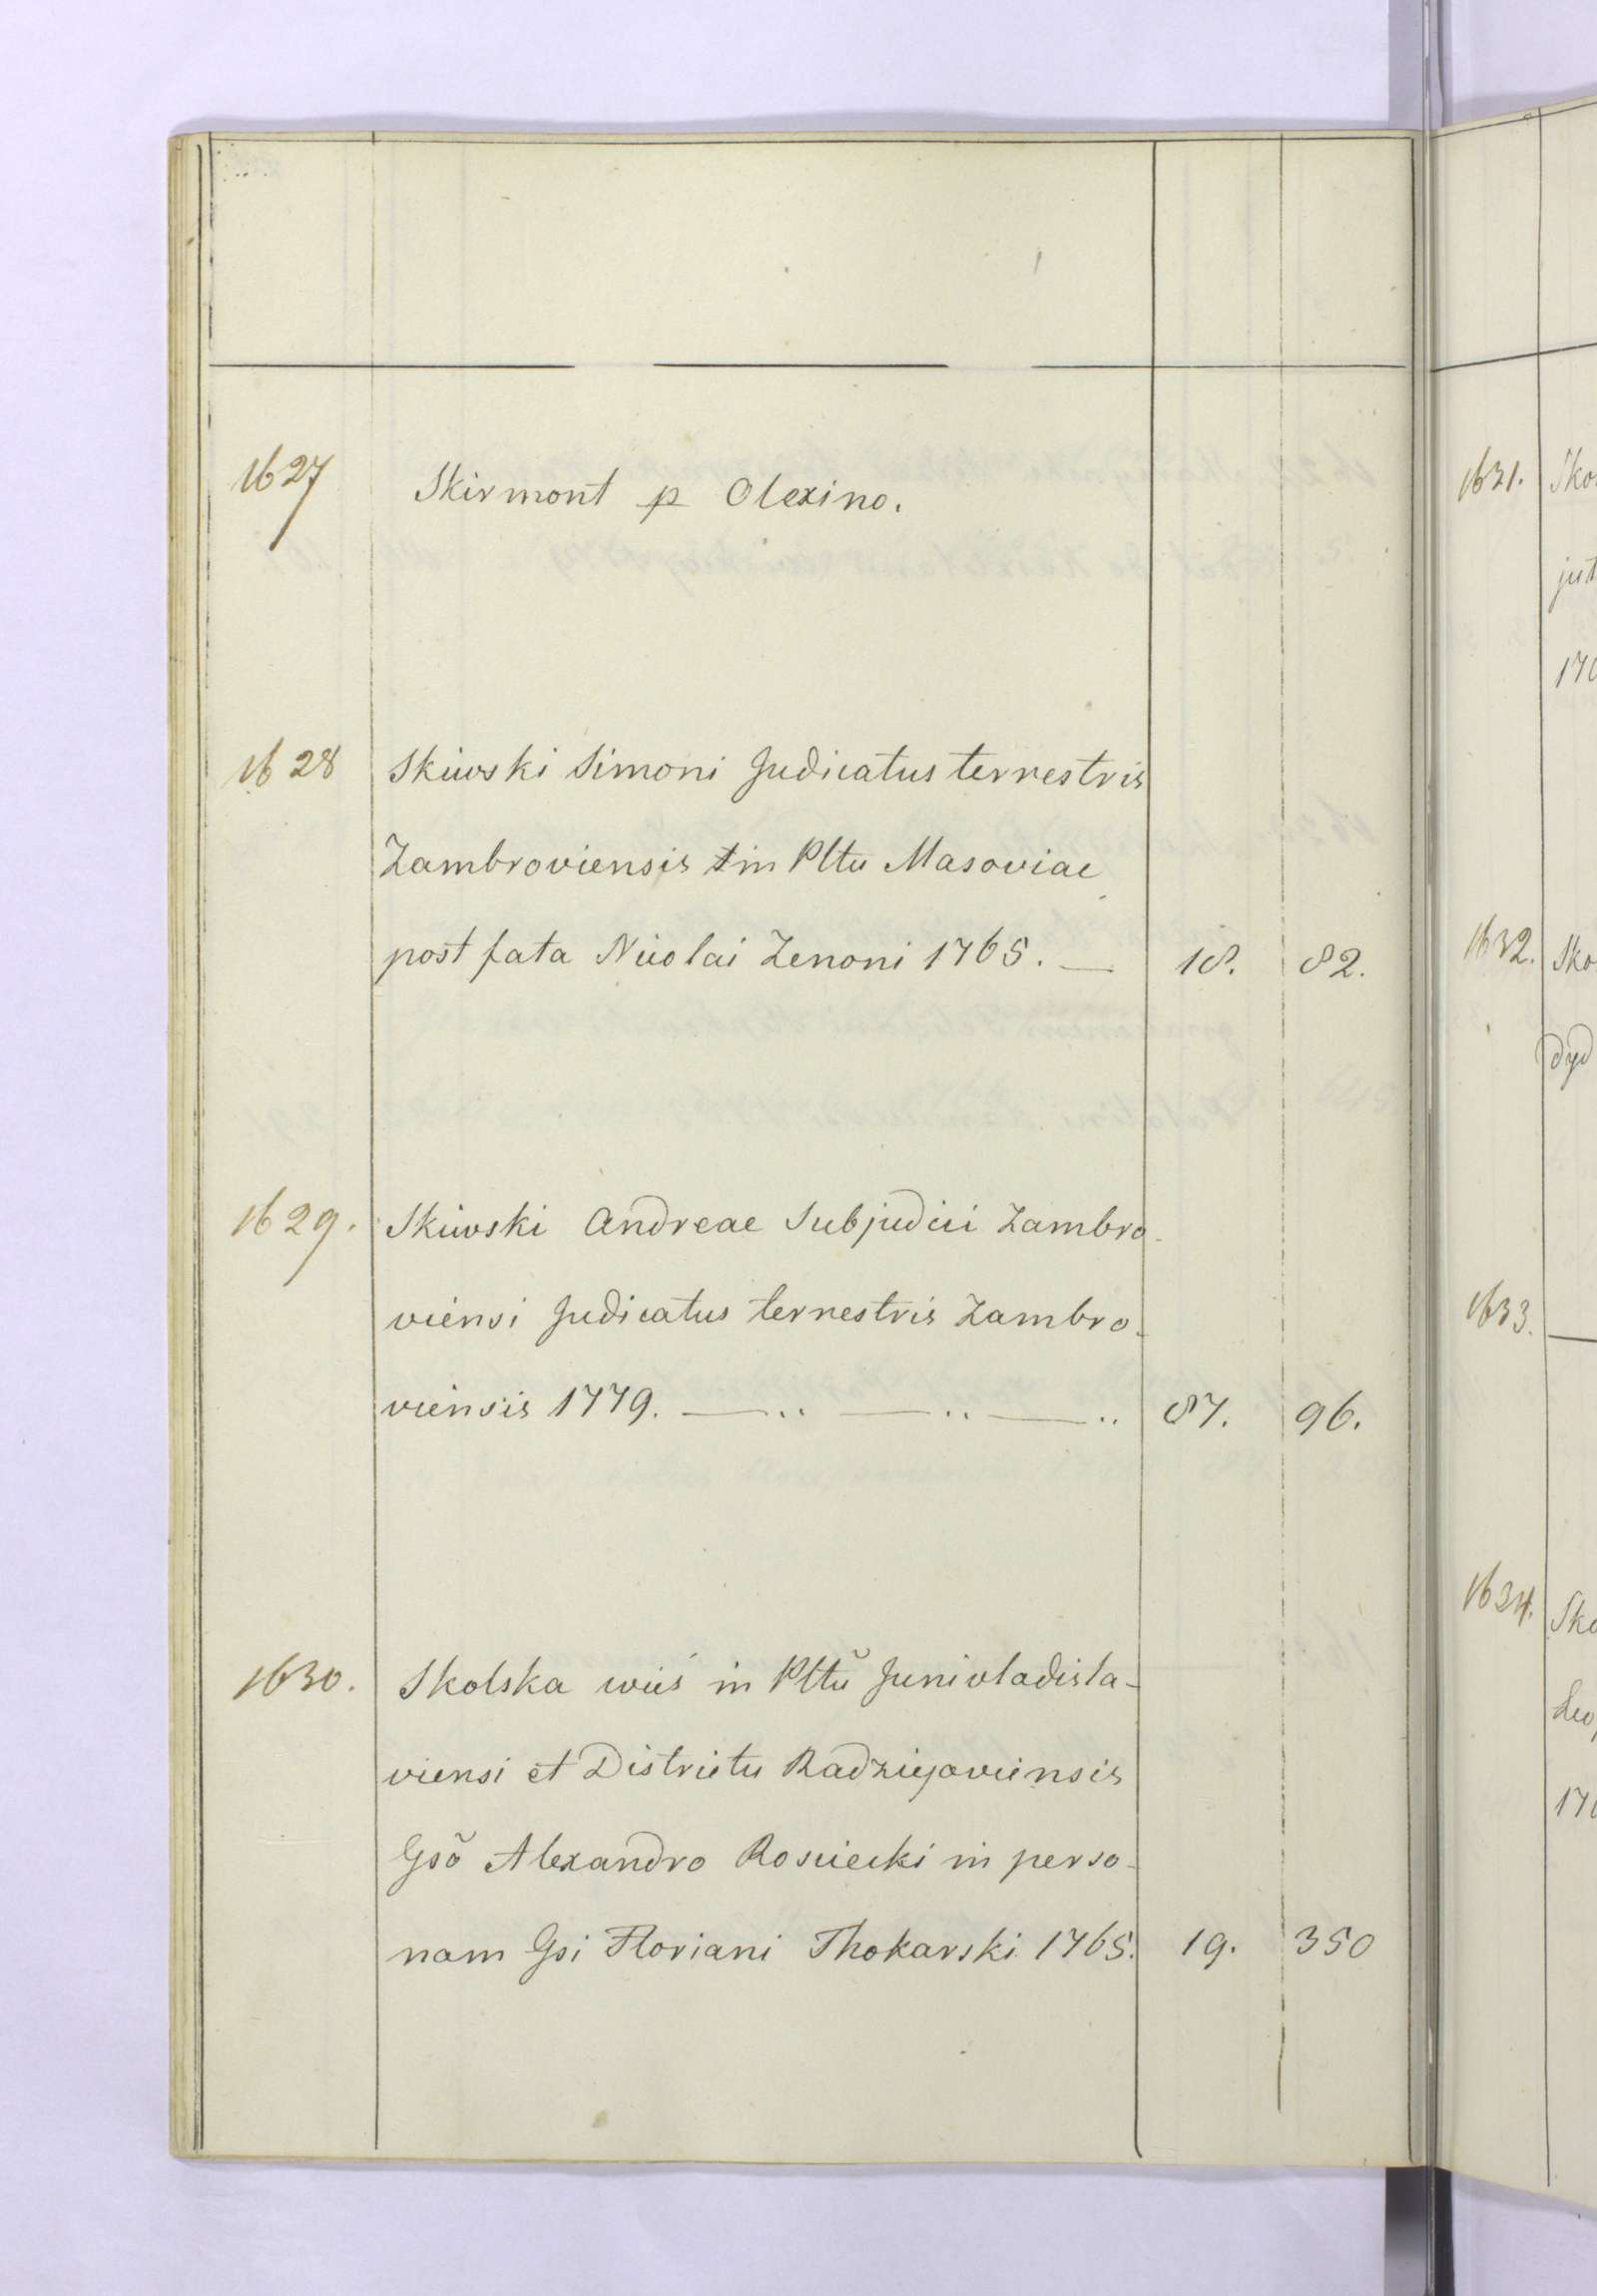 1627 Skirmont p Olexino.
1628 Skiwski Simoni Judicatus terrestris
Zambroviensis in Pltu Masoviae
post fata Nicolai Zenoni 1765. — 18. 82.
1629. Skiwski Andreae Subjudici Zambro-
viensi Judicatus terrestris Zambro-
viensis 1779. —..—..—.. 87. 96.
1630. Skolska wieś in Pltũ Junivladisla-
viensi et Districtu Radziejoviensis
Gsõ Alexandro Rosciecki in perso-
nam Gsi Floriani Thokarski 1765. 19. 350
1631. Sko
jut
170
1632. Sko
dyd
1633. —
1634. Sko